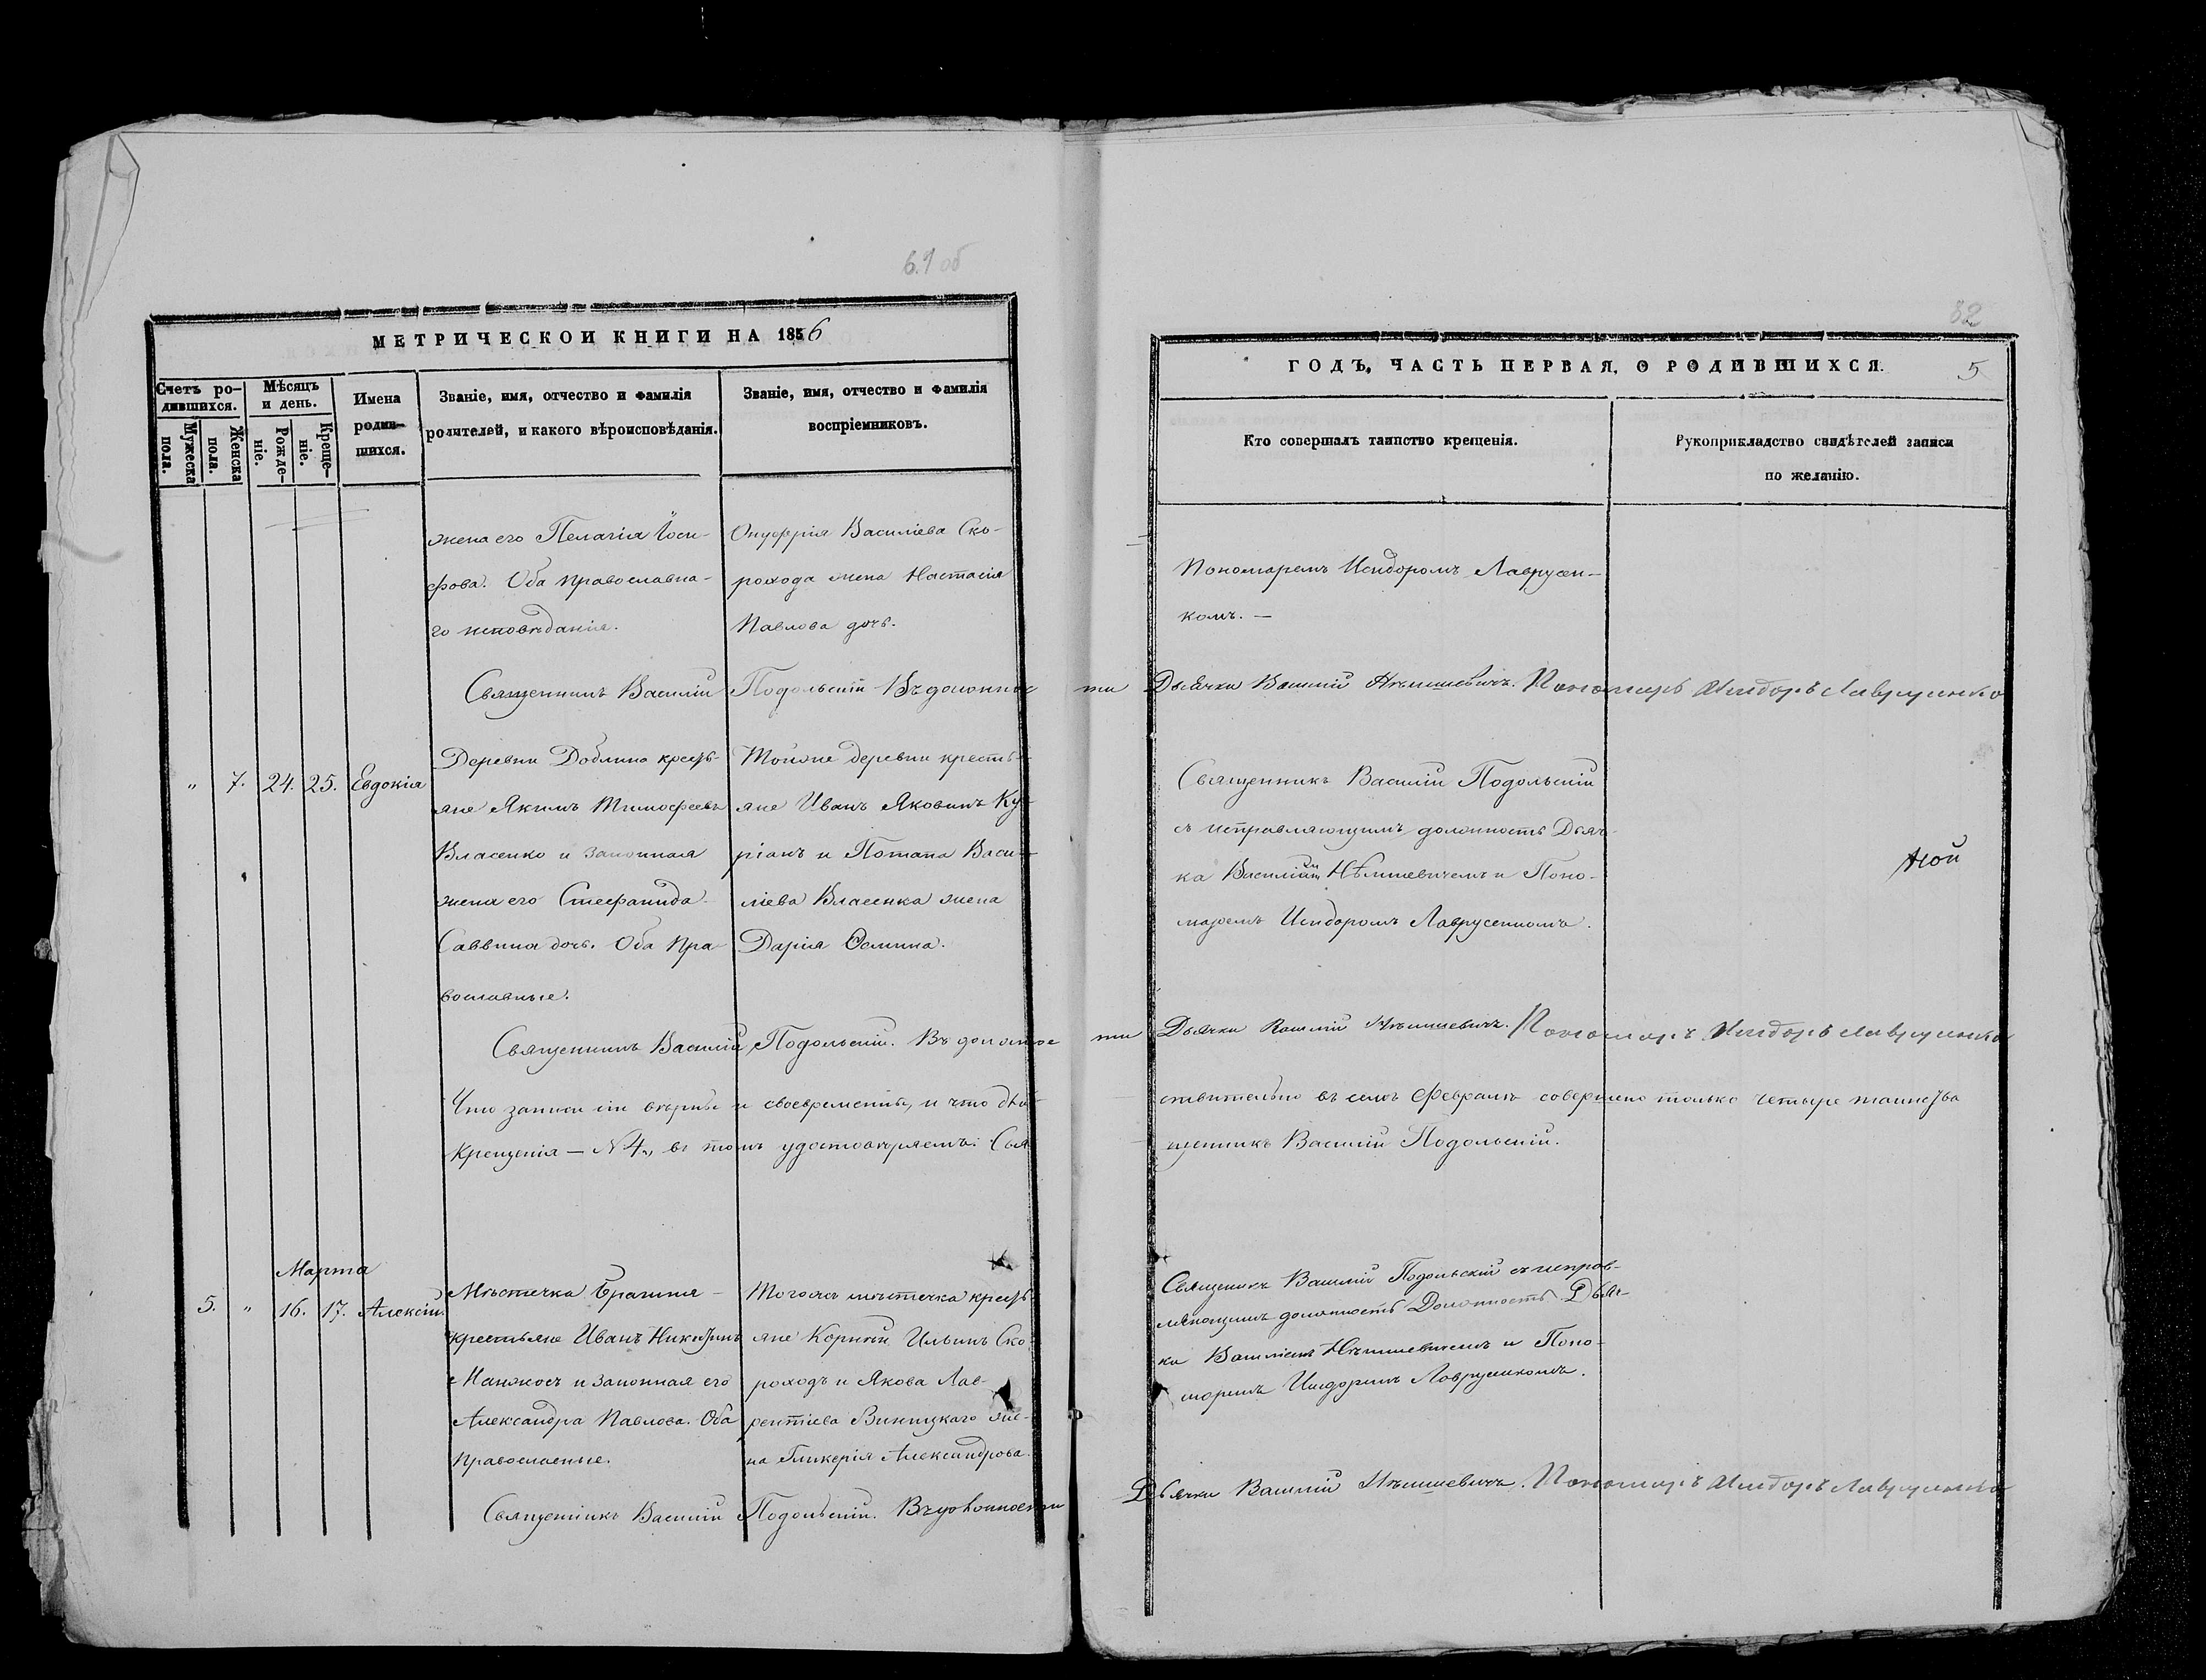 61 об
МЕТРИЧЕСКОЙ КНИГИ НА 1856
Счетъ ро-
дившихся.
Мѣсяцъ
и день.
Имена
родив-
шихся.
Званіе, имя, отчество и фамилія
родителей, и какого вѣроисповѣданія.
Званіе, имя, отчество и фамилія
воспріемниковъ.
Мужеска
пола.
Женска
пола.
Рожде-
ніе.
Креще-
ніе.
жена его Пелагія Іоси-
фова. Оба православна-
го исповѣданія.
Онуфрія Василіева Ско-
рохода жена Настасія
Павлова дочь.
Священникъ Василій Подольскій Въ должнос
" 7. 24. 25. Евдокія
Деревни Доблино кресть-
яне Якимъ Тимофеевъ
Власенко и законная
жена его Стефанида
Саввина дочь. Оба пра-
вославные.
Тойже деревни кресть-
яне Иванъ Яковинъ Ку-
ріанъ и Потапа Васи-
ліева Власенка жена
Дарія Ѳомина.
Священникъ Василій Подольскій. Въ должнос
Что записи сіи вѣрны и своевременны, и что дѣй-
Крещенія — N 4., въ томъ удостовѣряемъ: Свя-
Марта
5. " 16. 17. Алексій.
Мѣстечка Брагиня
крестьяне Иванъ Никитинъ
Манжосъ и законная его
Александра Павлова. Оба
православные.
Тогоже мѣстечка кресть-
яне Корній Ильинъ Ско-
роходъ и Якова Лав-
рентіева Виницкаго же-
на Гликерія Александрова.
Священникъ Василій Подольскій. Въ должности
62
ГОДЪ, ЧАСТЬ ПЕРВАЯ, О РОДИВШИХСЯ. 5
Кто совершалъ таинство крещенія.
Рукоприкладство свидѣтелей записи
по желанію.
Пономаремъ Исидоромъ Лаврусен-
комъ. —
ти Дьячка Василій Нѣмшевичъ. Пономарь Исидоръ Лаврусенко
Священникъ Василій Подольскій
съ исправляющимъ должность Дьяч-
ка Василіемъ Нѣмшевичемъ и Поно-
маремъ Исидоромъ Лаврусенкомъ.
ной
ти Дьячка Василій Нѣмшевичъ. Пономарь Исидоръ Лаврусенко
ствительно въ семъ Февралѣ совершено только четыре таинства
щенникъ Василій Подольскій.
Священикъ Василій Подольскій съ исправ-
ляющимъ должность Должность Дьяч-
ка Василіемъ Нѣмшевичемъ и Поно-
маремъ Исидоромъ Лаврусенкомъ.
Дьячка Василій Нѣмшевичъ. Пономарь Исидоръ Лаврусенко